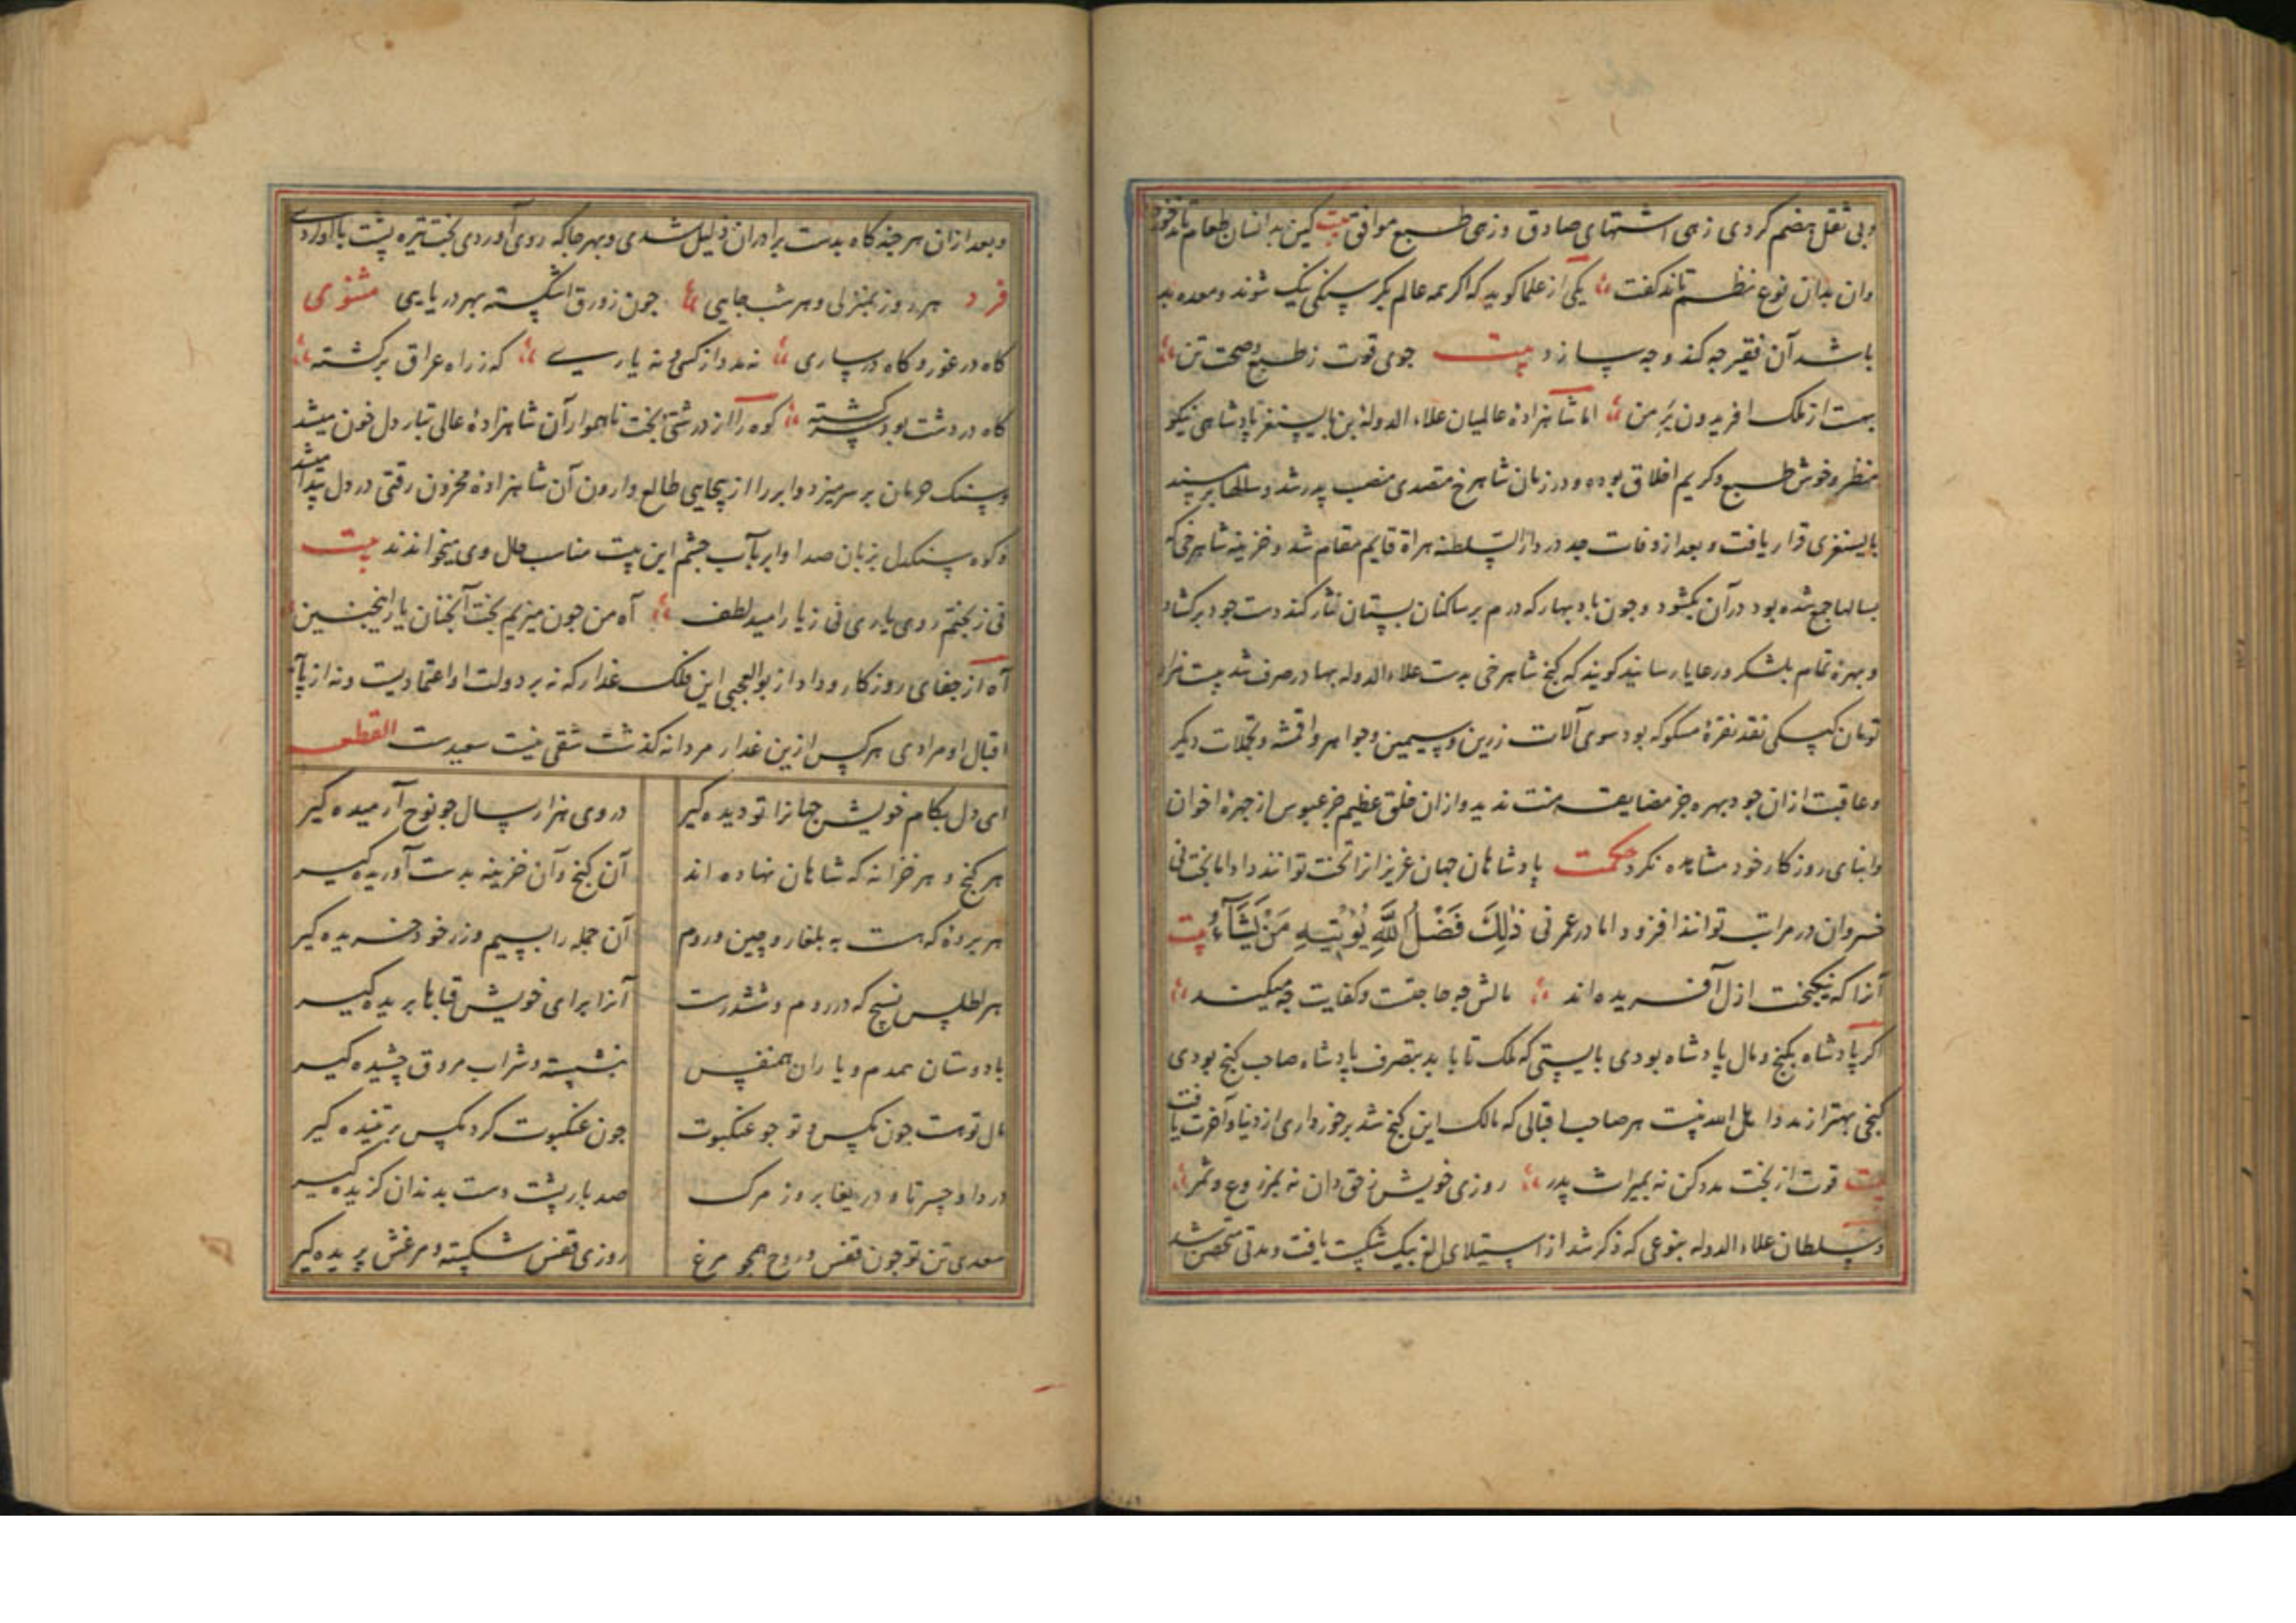 وبی ثقل هضم کردی زهی اشتهای صادق وزهی طبع موافق بیت کین بدانسان طعام تاند خورد
وان بدان نوع نظم تاند گفت یکی از علما کوید که اکر همه عالم بکر سنکی نیک شوند ومعده بد
باشد آن فقیر چه کند و چه سازد بیت جوی قوت ز طبع وصحت تن
بهست از ملک افریدون بر من اما شاهزادهٔ عالمیان علاء الدوله بن بایسنغر پادشاهی نیکو
منظر وخوش طبع وکریم اخلاق بوده ودر زمان شاهرخ متصدی منصب پدر شد وسالها بر مسند
بایسنغری قرار یافت و بعد از وفات جد در دار السلطنه هراة قایم مقام شد وخزینه شاهرخی که
بسالها جمع شده بود در آن بکشود وچون باد بهار که درم بر ساکنان بستان نثار کند دست جود برکشاد
وبهرهٔ تمام بلشکر ورعایا رسانید کویند که کنج شاهرخی بدست علاء الدوله بهادر صرف شد بیست هزار
تومان کپکی نقد نقرهٔ مسکوکه بود سوی آلات زرین وسیمین وجواهر واقمشه وتجملات دیکر
وعاقبت ازان جود بهره جز مضایقه منت ندید وازان خلق عظیم جز عبوس از چهرهٔ اخوان
وابنای روزکار خود مشاهده نکرد حکمت پادشاهان جهان عزیزانرا تخت توانند داد اما بخت نی
خسروان در مراتب توانند افزود اما در عمر نی ذٰلِكَ فَضْلُ اللَّهِ يُؤْتِيهِ مَنْ يَشَآءُ بیت
آنرا که نیکبخت ازل آفریده اند مالش چه حاجتست وکفایت چه میکند
اکر پادشاه بکنج ومال پادشاه بودی بایستی که ملک تا باید بتصرف پادشاه صاحب کنج بودی
کنجی بهتر از مدد اهل الله نیست هر صاحب اقبالی که مالک این کنج شد برخورداری از دنیا وآخرت یافت
بیت قوت از بخت مدد کن نه بمیراث پدر روزی خویش ز حق دان نه بمزروع وثمر
وسلطان علاء الدوله بنوعی که ذکر شد از استیلای الغ بیک شکست یافت ومدتی متحصن شد
وبعد ازان هر چند کاه بدست برادران ذلیل شدی وبهر جا که روی آوردی بخت تیره پشت با او کردی
فرد هر روز بمنزلی وهر شب جایی چون زورق اشکسته بهر دریایی مثنوی
کاه در غور وکاه در ساری نه مدد از کسی ونه یاری که ز راه عراق برکشته
کاه در دشت بود سرکشته کوه را از درشتی بخت ناهموار آن شاهزادهٔ عالی تبار دل خون میشد
وسنک حرمان بر سر میزد وابر را از بیجایی طالع وارون آن شاهزادهٔ محزون رقتی در دل پیدا میشد
وکوه سنکدل بزبان صدا وابر بآب چشم این بیت مناسب حال وی میخواندند بیت
نی ز بختم روی یاری نی ز یار امید لطف آه من چون میزیم بخت آنچنان یار اینچنین
آه از جفای روزکار وداد از بوالعجبی این فلک غدار که نه بر دولت او اعتمادیست ونه از
اقبال او مرادی هر کس ازین غدار مردانه کذشت شقی نیست سعیدست القطعه
ای دل بکام خویش جهانرا تو دیده کیر در وی هزار سال چو نوح آرمیده کیر
هر کنج و هر خزانه که شاهان نهاده اند آن کنج وآن خزینه بدست آوریده کیر
هر برده که هست به بلغار وچین وروم آن جمله را بسیم وزر خود خریده کیر
هر اطلس نسیج که در روم وششترست آنرا برای خویش قباها بریده کیر
با دوستان همدم و یاران همنفس بنشسته وشراب مروق چشیده کیر
مال تو هست چون مکس وتو چو عنکبوت چون عنکبوت کرد مکس بر تنیده کیر
دردا وحسرتا ودریغا بروز مرک صد بار پشت دست بدندان کزیده کیر
سعدی تن تو چون قفس وروح همچو مرغ روزی قفس شکسته ومرغش پریده کیر